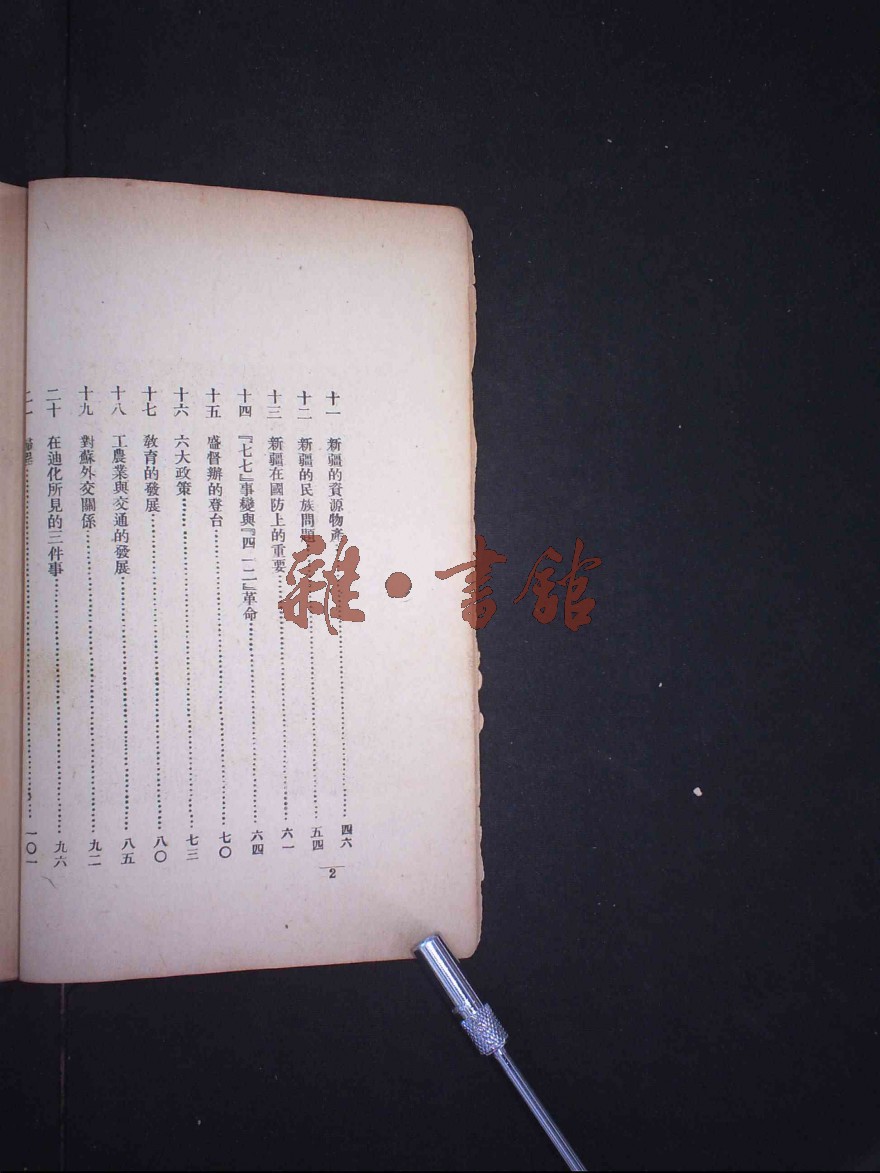 十一　新疆的資源物產……四六
十二　新疆的民族問題……五四
十三　新疆在國防上的重要……六一
十四　『七七』事變與『四一二』革命……六四
十五　盛督辦的登台……七〇
十六　六大政策……七三
十七　教育的發展……八〇
十八　工農業與交通的發展……八五
十九　對蘇外交關係……九二
二十　在迪化所見的三件事……九六
二一　……一〇一
2
雜·書館